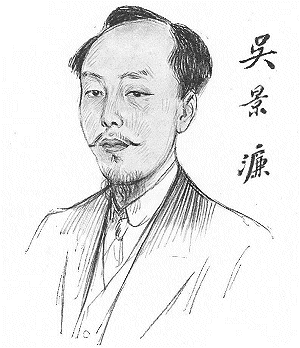 吳景濂